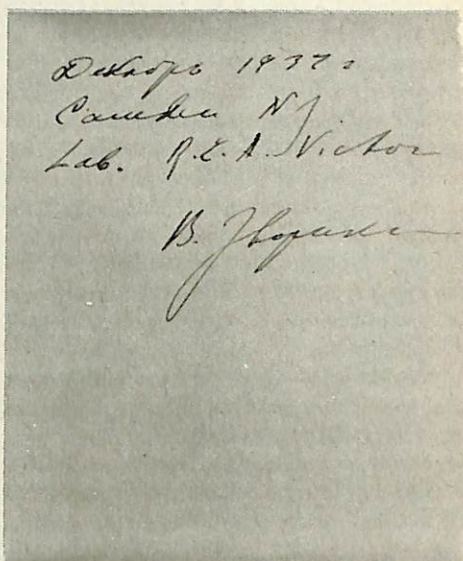 Декабрь 1937 г
Camden NJ
Lab. R.C.A. Victor
В. Зворыкин